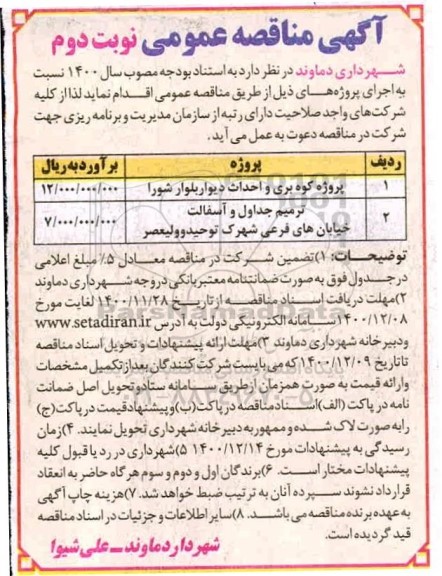 آگهی مناقصه عمومی نوبت دوم
شهرداری دماوند در نظر دارد به استناد بودجه مصوب سال ۱۴۰۰ نسبت
به اجرای پروژه‌های ذیل از طریق مناقصه عمومی اقدام نماید لذا از کلیه
شرکت‌های واجد صلاحیت دارای رتبه از سازمان مدیریت و برنامه ریزی جهت
شرکت در مناقصه دعوت به عمل می آید.
ردیف پروژه برآورد به ریال
۱ پروژه کوه بری و احداث دیوار بلوار شورا ۱۲/۰۰۰/۰۰۰/۰۰۰
۲ ترمیم جداول و آسفالت
خیابان های فرعی شهرک توحید وولیعصر ۷/۰۰۰/۰۰۰/۰۰۰
توضیحات: ۱)تضمین شرکت در مناقصه معادل ۵٪ مبلغ اعلامی
در جدول فوق به صورت ضمانتنامه معتبر بانکی در وجه شهرداری دماوند
۲)مهلت دریافت اسناد مناقصه از تاریخ ۱۴۰۰/۱۱/۲۸ لغایت مورخ
۱۴۰۰/۱۲/۰۸ سامانه الکترونیکی دولت به آدرس www.setadiran.ir
و دبیرخانه شهرداری دماوند ۳)مهلت ارائه پیشنهادات و تحویل اسناد مناقصه
تا تاریخ ۱۴۰۰/۱۲/۰۹ که می بایست شرکت کنندگان بعد از تکمیل مشخصات
وارائه قیمت به صورت همزمان از طریق سامانه ستاد و تحویل اصل ضمانت
نامه در پاکت (الف) اسناد مناقصه در پاکت (ب) و پیشنهاد قیمت در پاکت (ج)
را به صورت لاک شده و ممهور به دبیرخانه شهرداری تحویل نمایند. ۴)زمان
رسیدگی به پیشنهادات مورخ ۱۴۰۰/۱۲/۱۴ ۵)شهرداری در رد یا قبول کلیه
پیشنهادات مختار است. ۶)برندگان اول و دوم و سوم هرگاه حاضر به انعقاد
قرارداد نشوند سپرده آنان به ترتیب ضبط خواهد شد. ۷)هزینه چاپ آگهی
به عهده برنده مناقصه می باشد. ۸)سایر اطلاعات و جزئیات در اسناد مناقصه
قید گردیده است.
شهردار دماوند ـ علی شیوا